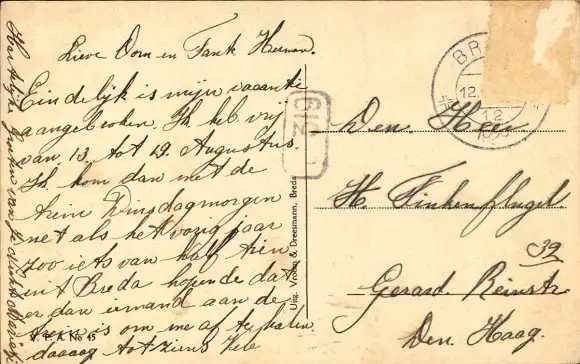 Lieve Oom en Tante Herman.
Eindelijk is mijn vacantie
aangebroken. Ik heb vrij
van 13 tot 19 Augustus.
Ik kom dan met de
trein Dinsdagmorgen
net als het vorig jaar
zoo iets van half tien
uit Breda hopende dat
er dan iemand aan de
trein is om me af te halen
daaaag tot ziens
Hartelijke Groeten van
V. P. A. No 45
Uitg. Vroom & Dreesmann, Breda
219
BR
12.
12
Den Heer
H. Finkenflugel.
Gerard Reinstr.
39
Den Haag.